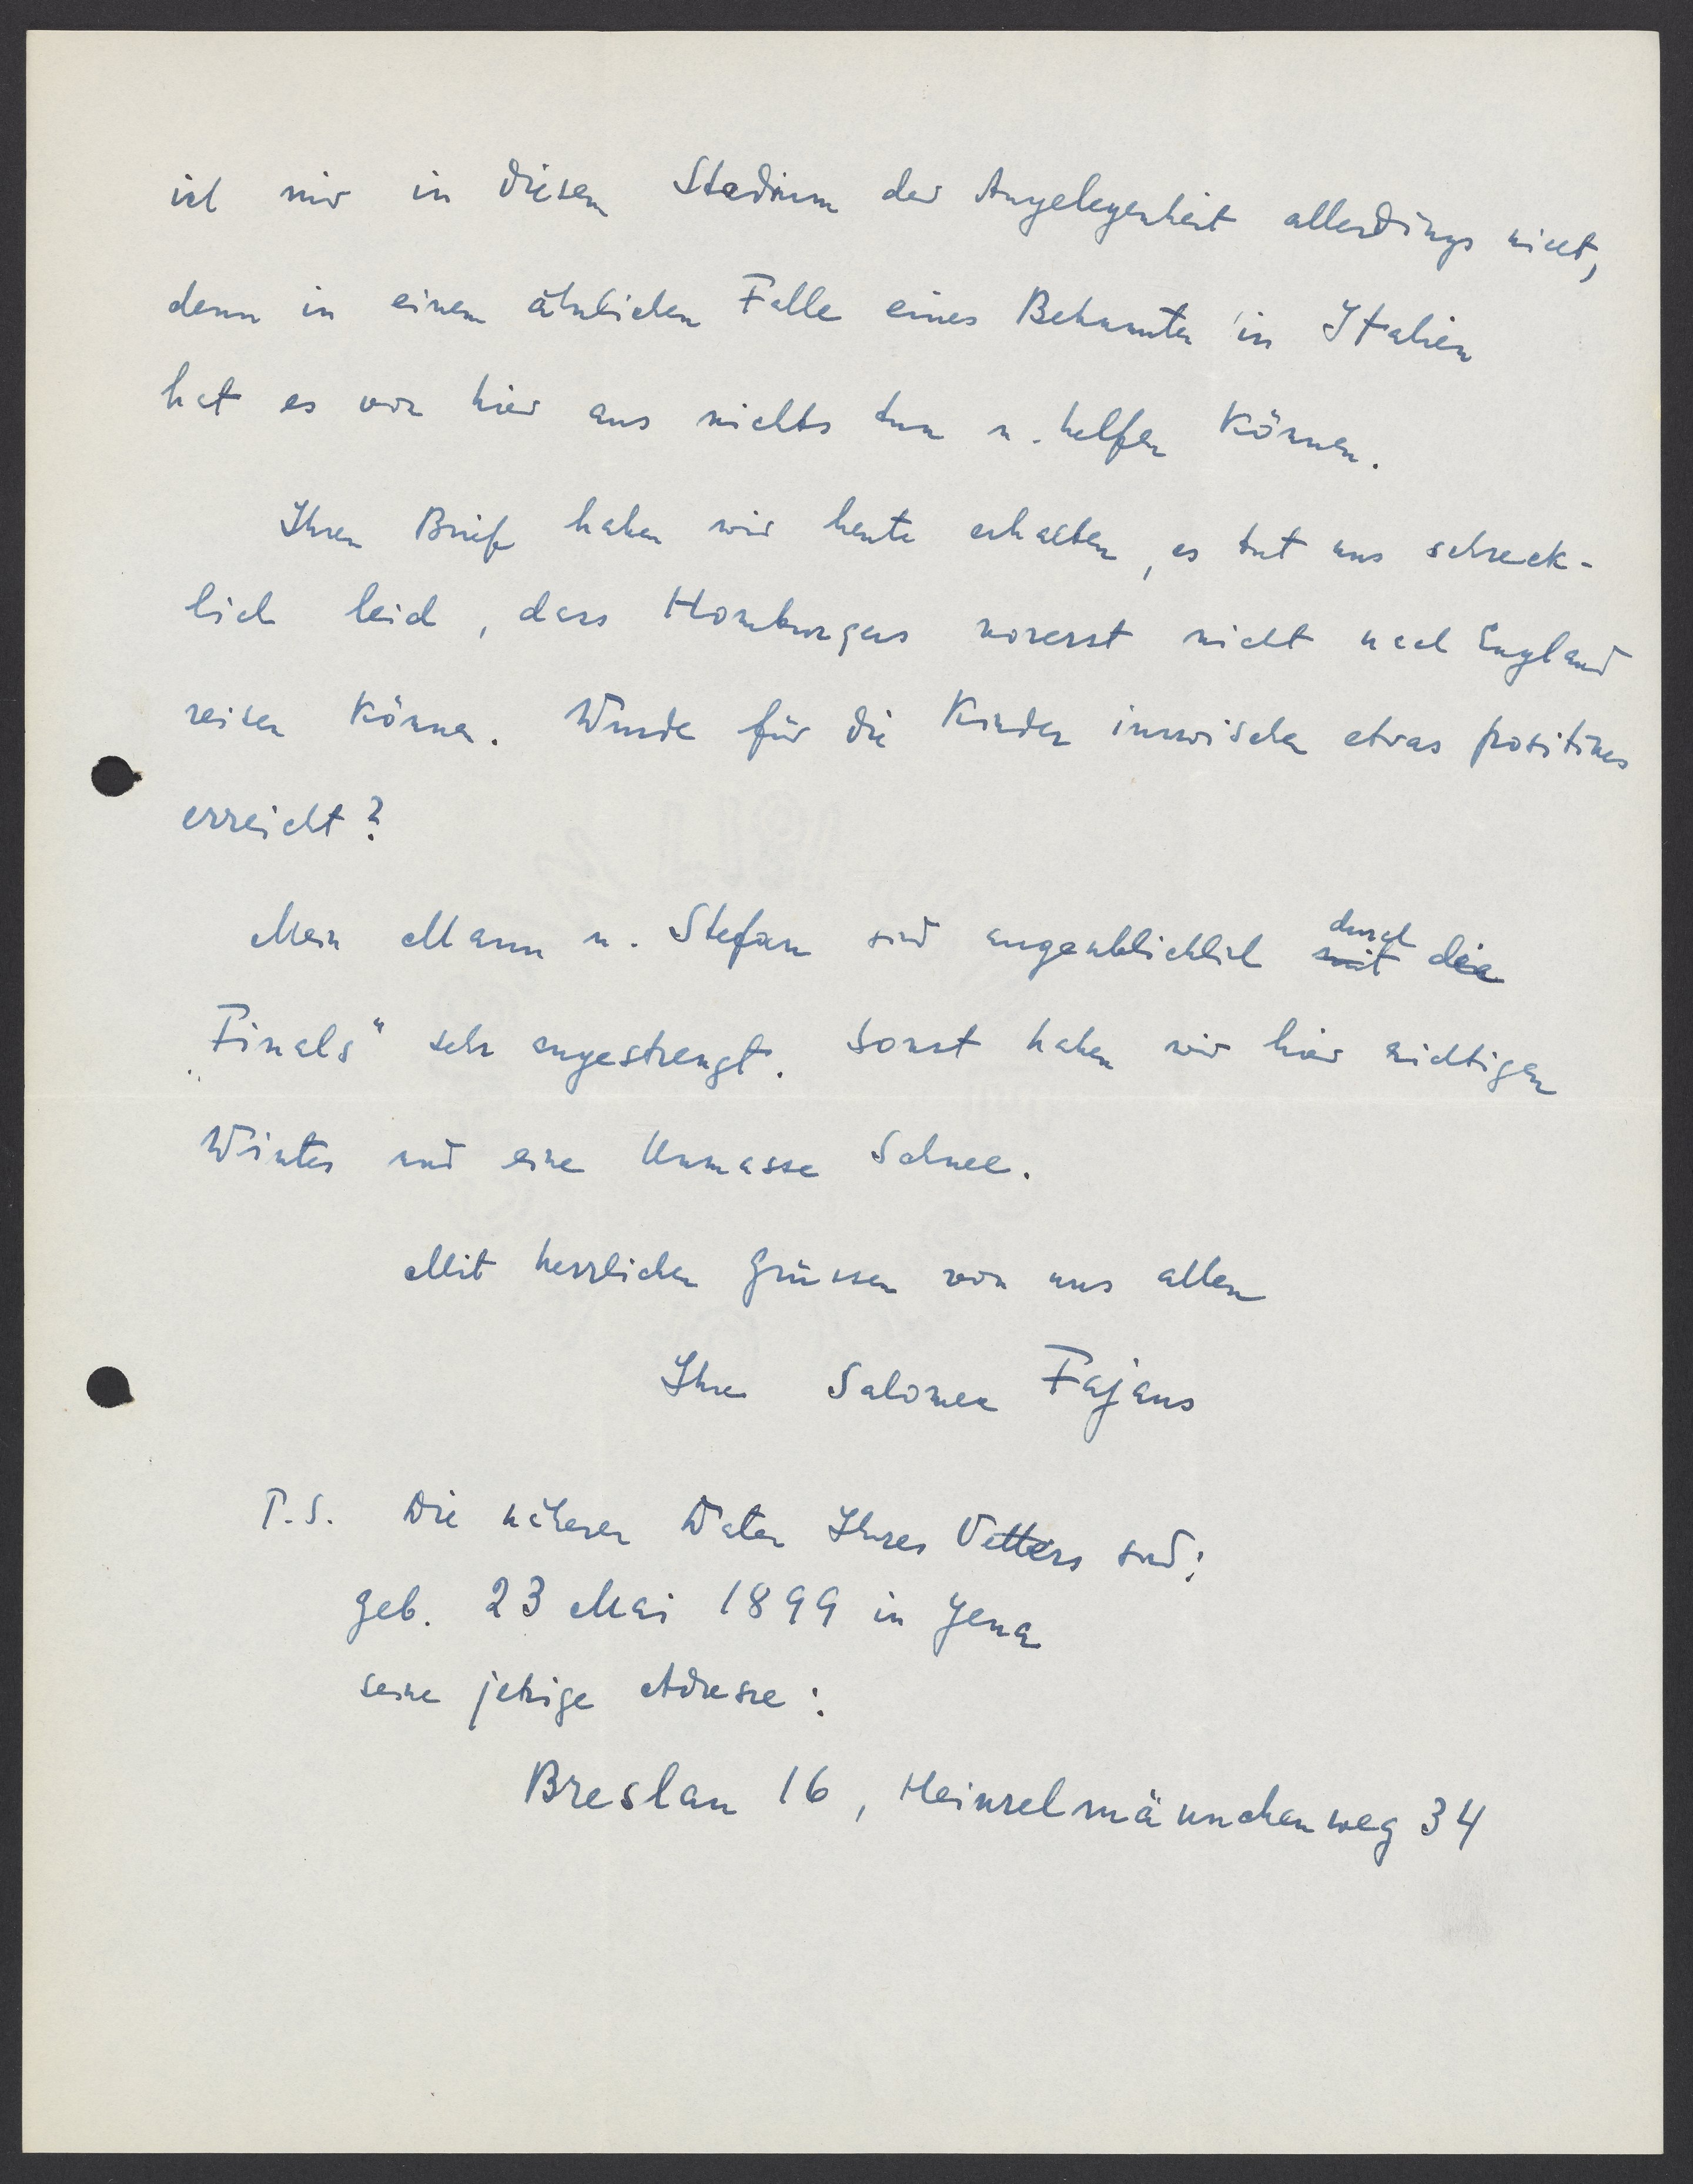 ich mir in diesem Stadium der Angelegenheit allerdings nicht,
denn in einem ähnlichen Falle eines Bekannten in Italien
hat es von hier aus nichts tun u. helfen können.
Ihren Brief haben wir heute erhalten, es tut uns schreck-
lich leid, dass Homburgers vorerst nicht nach England
reisen können. Wurde für die Kinder inzwischen etwas positives
erreicht?
Mein Mann u. Stefan sind augenblicklich durch die
„Finals" sehr angestrengt. Sonst haben wir hier richtigen
Winter und eine Unmasse Schnee.
Mit herzlichen Grüssen von uns allen
Ihre Salomea Fajans
P.S. Die näheren Daten Ihres Vetters sind:
geb. 23 Mai 1899 in Jena
seine jetzige Adresse:
Breslau 16, Heinzelmännchenweg 34